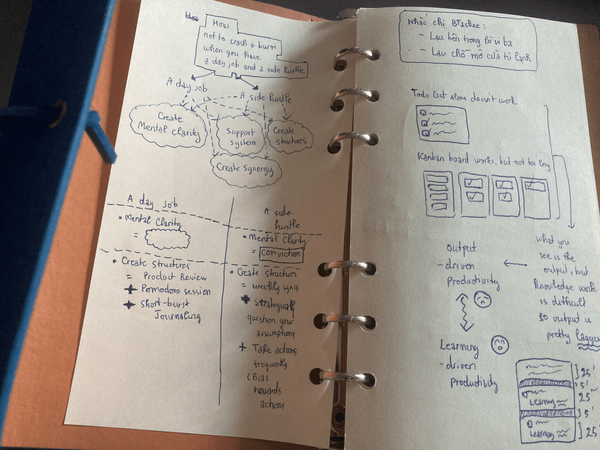 How
How
not to crash & burn
when you have
a day job and a side hustle
A day job
A side hustle
Create
Mental Clarity
Support
system
Create
structures
Create Synergy
A day job
• Mental Clarity
=
• Create structures
= Product Review
+ Pomodoro session
+ Short-burst
Journaling
A side
hustle
• Mental Clarity
= Conviction
• Create structures
= weekly syncs
+ Strategically
question your
assumptions
+ Take actions
frequently
(Bias
towards
actions
Nhắc chị Btaskee:
- Lau bên trong lò vi ba
- Lau chỗ mở cửa tủ lạnh
Todo list alone doesn't work
Kanban board works, but not for long
Output
-driven
Productivity
what you
see is the
output, but
knowledge work
is difficult
so output is
pretty laggy
Learning
-driven
Productivity
25'
5'
Learning
25'
5'
Learning
25'